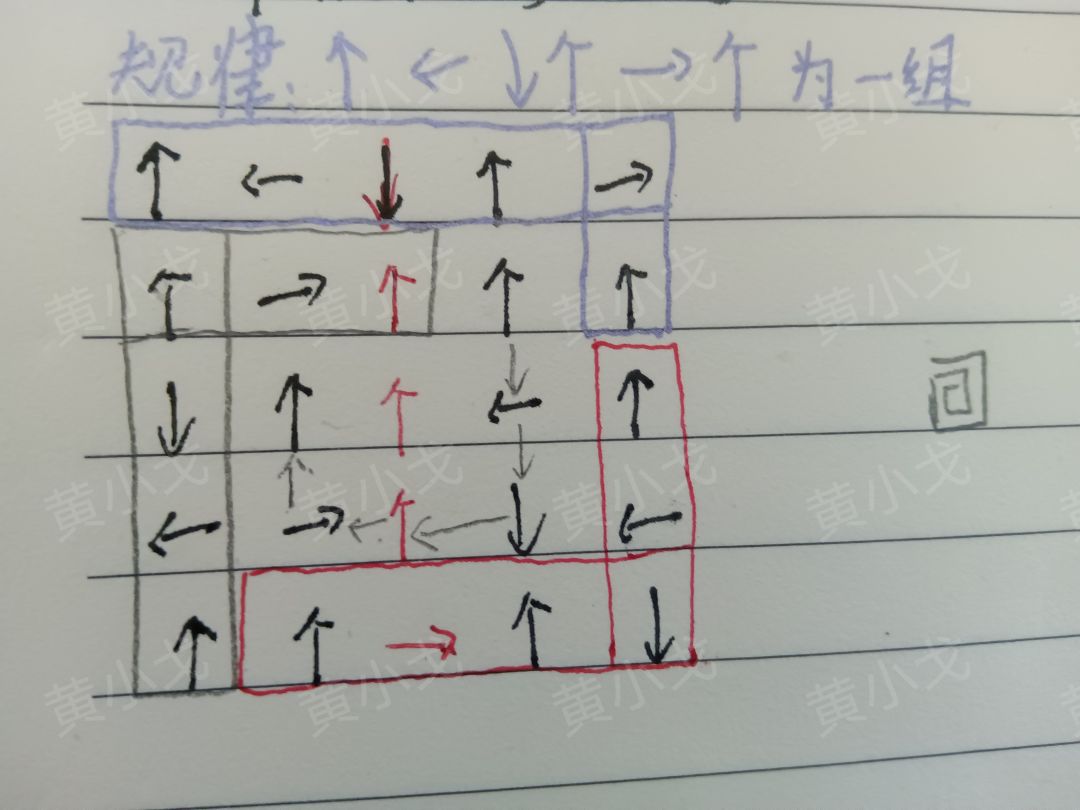 规律：↑ ← ↓ ↑ → ↑ 为一组
↑ ← ↓ ↑ →
↑ → ↑ ↑ ↑
↓ ↑ ↑ ← ↑
← → ↑ ↓ ←
↑ ↑ → ↑ ↓
黄小戈